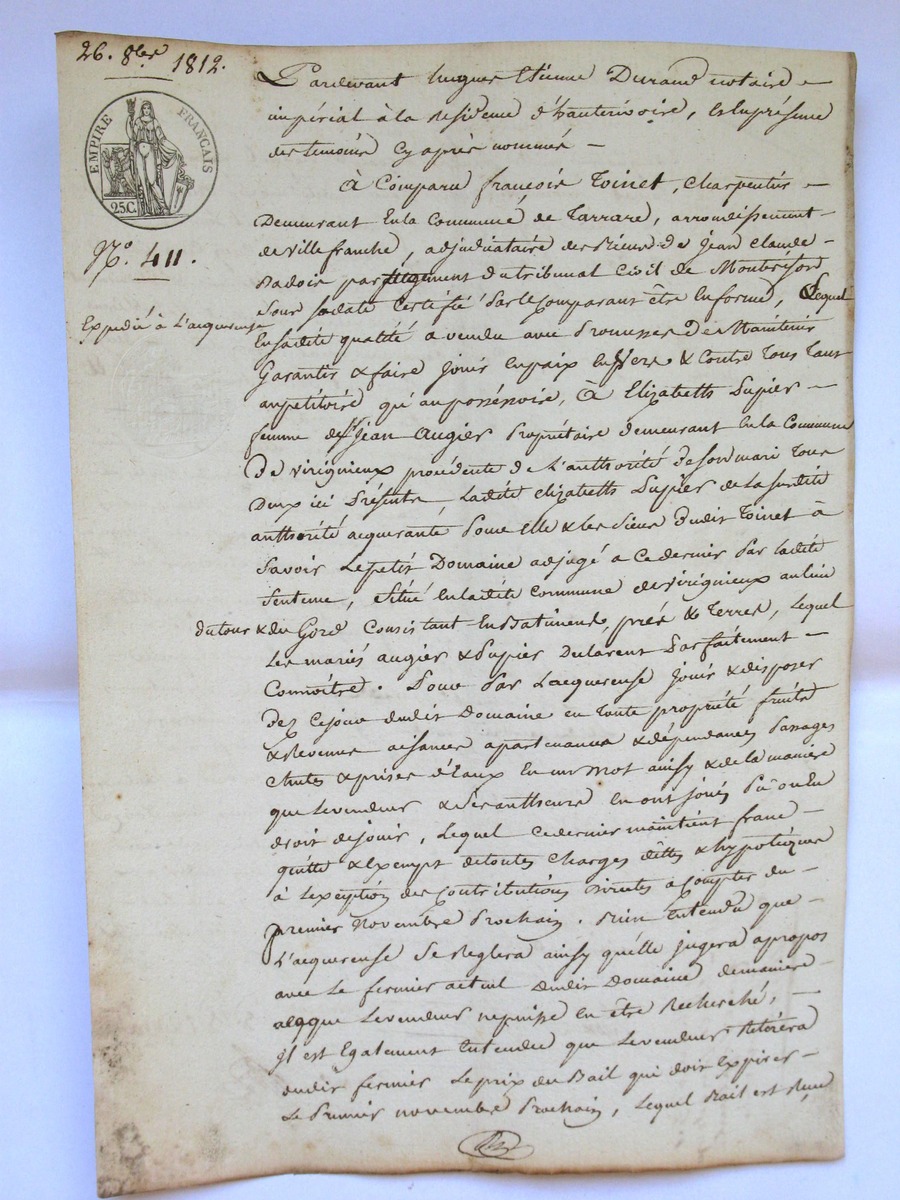 26. 8bre 1812.
EMPIRE FRANÇAIS
25.C.
N.° 411.
Expedié à L'acquereuse
Pardevant hugues Etienne Durand notaire
impérial à la Residence d'hauterivoire, Enla présence
des temoins Cy après nommés
à Comparu françois Toinet, Charpentier
Demeurant Enla Commune de Tarrare, arrondissement
de villefranche, adjudicataire des Biens de Jean Claude
par jugement du tribunal Civil de Montbrison
Sour sadate Certifié par le Comparant être En forme, Lequel
En sadite qualité a vendu avec Promesse de Maintenir
Garantir & faire Jouir En paix Envers & Contre Tous Tant
au petitoire qu'au possessoire, à Elizabeth Pupier
femme de Sr Jean Augier Propriétaire demeurant En la Commune
De virignieux procédente de L'authorité de Son mari Tous
Deux ici Présents, Ladite Elizabeth Pupier de la susdite
authorité acquerante Pour Elle & les Siens dudit Toinet à
Savoir Le petit Domaine adjugé a Ce dernier Par ladite
Sentence, Situé En ladite Commune de Virignieux au lieu
du tour & du Gord Consistant En Batimens, prés & Terres, Lequel
Les mariés augier & Pupier Déclarent Parfaitement
Connoître. Pour Par L'acquereuse Jouir & disposer
Dez Cejour dudit Domaine en Toute propriété fruits
& Revenus aisances apartenances & dépendances Passages
Chutes & prises d'Eaux En un Mot ainsy & de la manière
que Le vendeur & Ses autheurs En ont Joui Pû ou dû
droit de jouir, Lequel Ce dernier maintient franc
quitte & Exempt de toutes Charges dettes & hypotèques
à L'exeption des Contributions directes a Compter du
premier Novembre Prochain. Bien Entendu que
L'acquereuse Se Reglera ainsy qu'elle jugera apropos
avec Le fermier actuel dudit Domaine de manière
que Le vendeur ne puisse En être Recherché,
il est Egalement Entendu que Le vendeur Retirera
dudit fermier Le prix du Bail qui doit Expirer
Le Premier novembre Prochain, Lequel Bail est